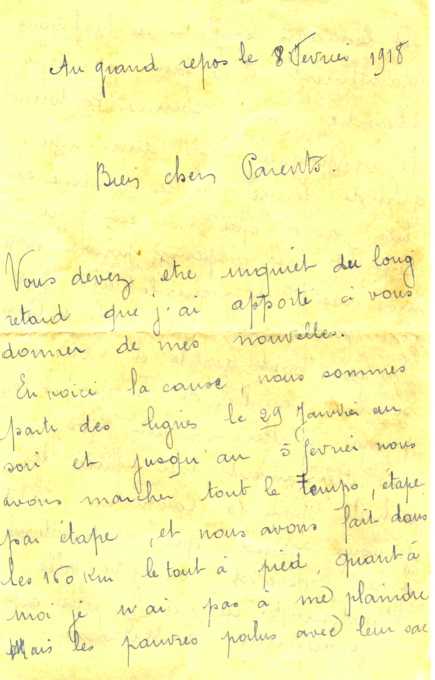 Au grand repos le 8 Fevrier 1918
Bien chers Parents.
Vous devez etre inquiet du long
retard que j'ai apporté a vous
donner de mes nouvelles.
En voici la cause, nous sommes
parti des lignes le 29 Janvier au
soir et jusqu'au 5 fevrier nous
avons marcher tout le temps, etape
par étape, et nous avons fait dans
les 160 Km le tout à pied, quant à
moi je n'ai pas à me plaindre
mais les pauvres poilus avec leur sac